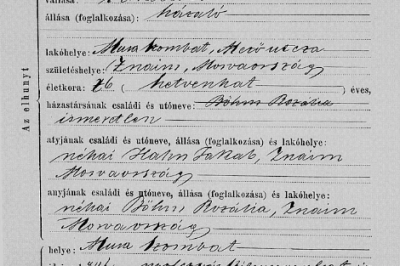 állása (foglalkozása):
lakóhelye: Mura kombat, Merő utcza
születéshelye: Znaim, Morvaország
életkora: 76 ( hetvenhat ) éves,
házastársának családi és utóneve: Böhm Rozália
ismeretlen
atyjának családi és utóneve, állása (foglalkozása) és lakóhelye:
néhai Hahn Jakab, Znaim
Morvaország
anyjának családi és utóneve, állása (foglalkozása) és lakóhelye:
néhai Böhm Rozália, Znaim
Morvaország
helye: Mura kombat
Az elhunyt